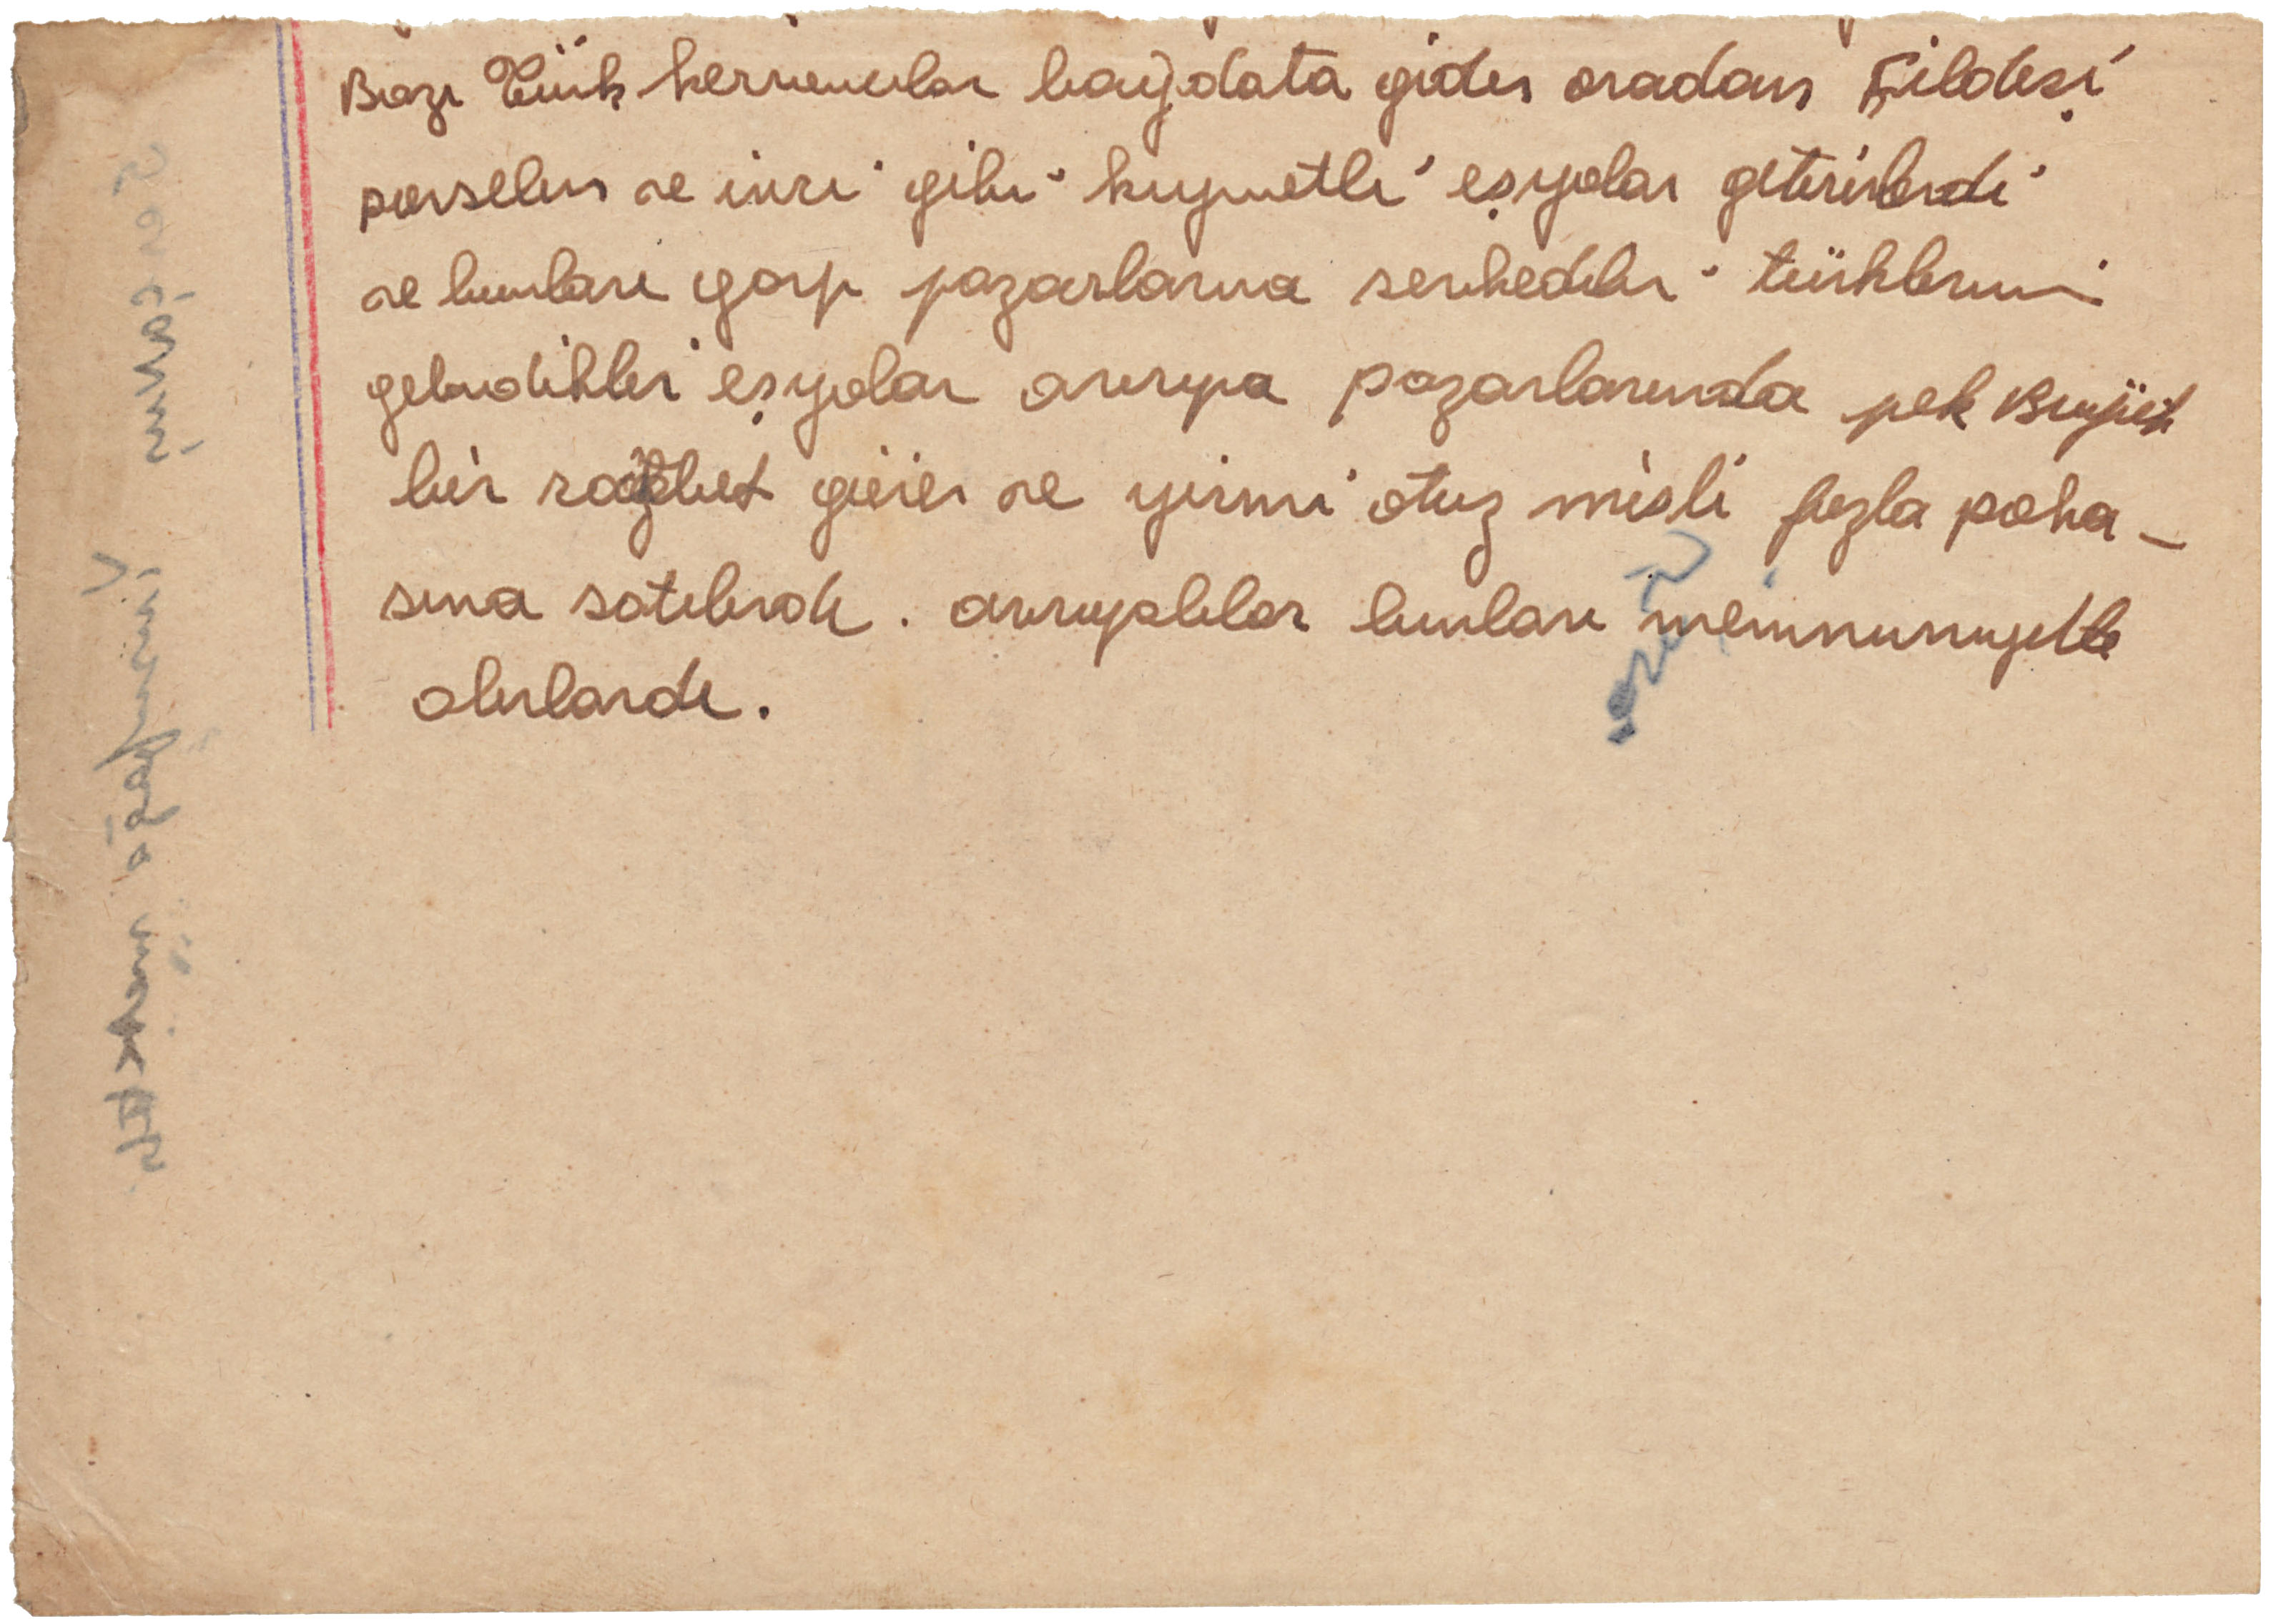 Bazı Türk kervancılar bağdata gider oradan Fildişi
porselen ve inci gibi kıymetli eşyalar getirirlerdi
ve bunları garp pazarlarına sevkedeler türklerin
getirdikleri eşyalar avrupa pazarlarında pek Büyük
bir rağbet görür ve yirmi otuz misli fazla paha-
sına satılırdı. avrupalılar bunları memnunuyetle
alırlardı.